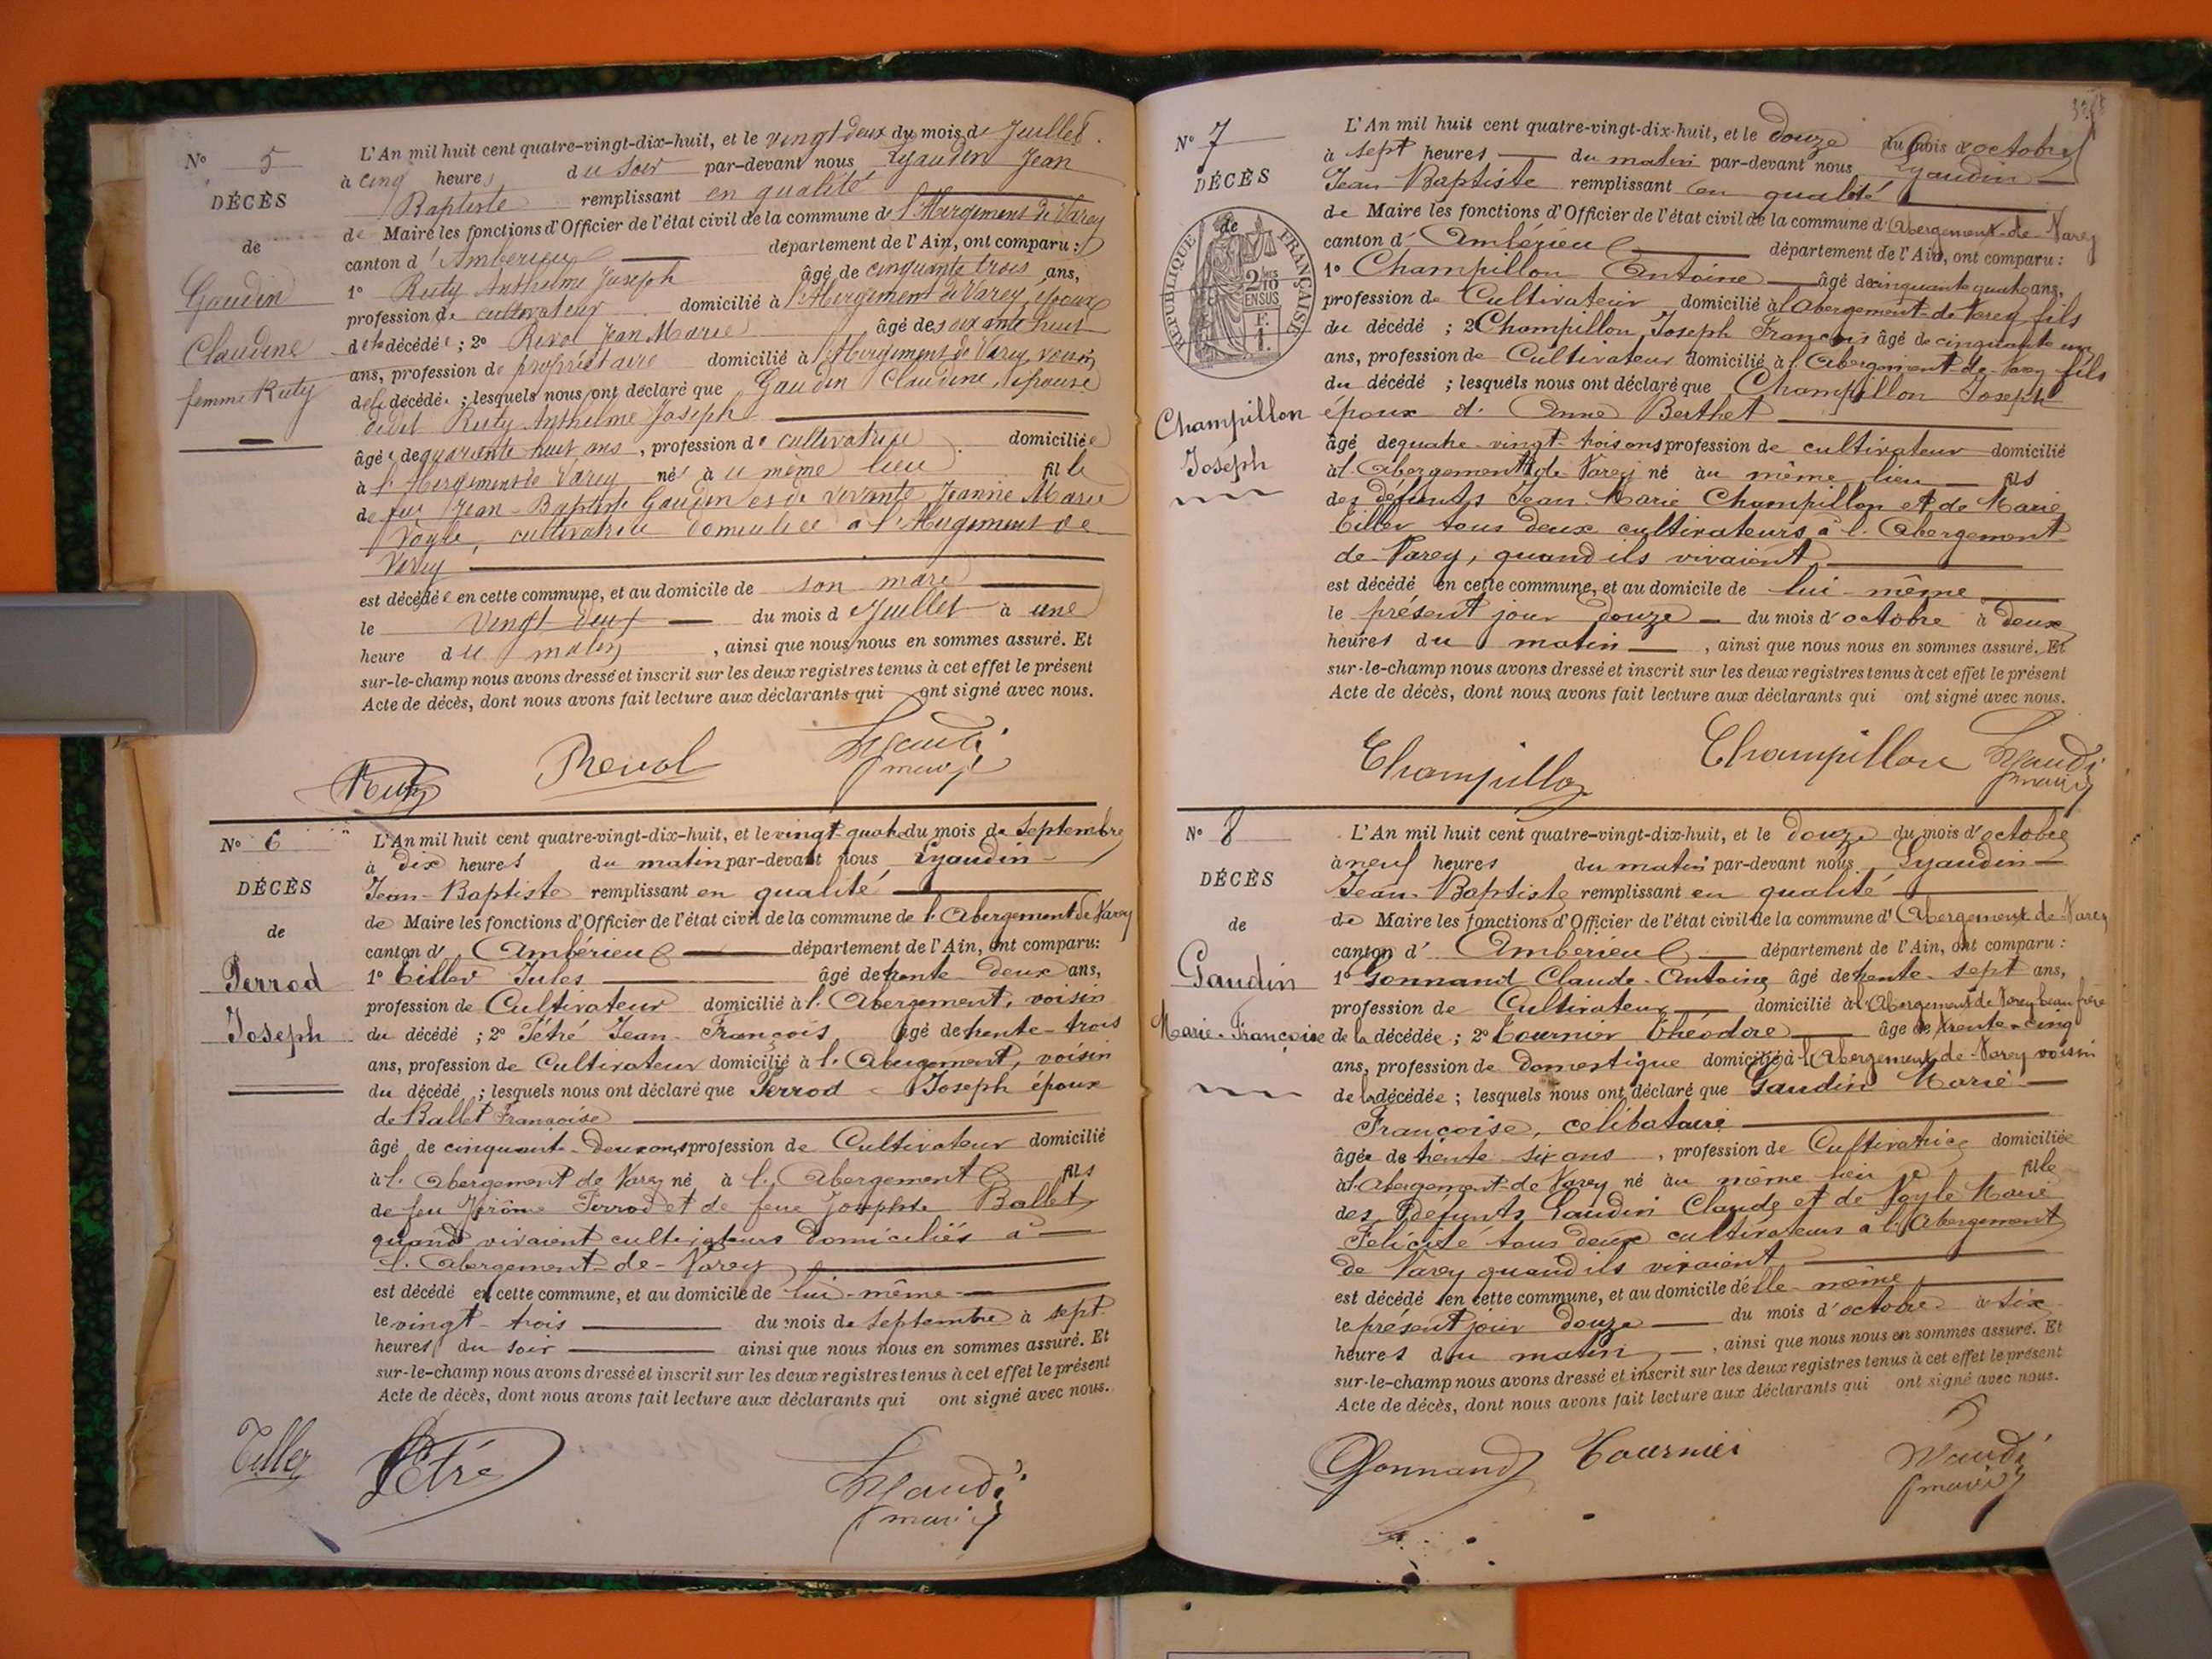 N° 5
DÉCÈS
de
Gaudin
Claudine
femme Ruty
L'An mil huit cent quatre-vingt-dix-huit, et le vingt deux du mois de Juillet
à cinq heures du soir par-devant nous Lyaudin Jean
Baptiste remplissant en qualité
de Maire les fonctions d'Officier de l'état civil de la commune de l'Abergement de Varey
canton d'Ambérieu département de l'Ain, ont comparu :
1° Ruty Anthelme Joseph âgé de cinquante trois ans,
profession de cultivateur domicilié à l'Abergement de Varey, époux
de la décédée ; 2° Revol Jean Marie âgé de soixante huit
ans, profession de propriétaire domicilié à l'Abergement de Varey, voisin
de la décédée ; lesquels nous ont déclaré que Gaudin Claudine, épouse
dudit Ruty Anthelme Joseph
âgée de quarante huit ans, profession de cultivatrice domiciliée
à l'Abergement de Varey né à ce même lieu fille
de feu Jean-Baptiste Gaudin et de vivante Jeanne Marie
Vayle, cultivatrice domiciliée à l'Abergement de
Varey
est décédée en cette commune, et au domicile de son mari
le vingt deux du mois d Juillet à une
heure du matin, ainsi que nous nous en sommes assuré. Et
sur-le-champ nous avons dressé et inscrit sur les deux registres tenus à cet effet le présent
Acte de décès, dont nous avons fait lecture aux déclarants qui ont signé avec nous.
Ruty Revol Lyaudi
maire
N° 6
DÉCÈS
de
Perrod
Joseph
L'An mil huit cent quatre-vingt-dix-huit, et le vingt-quatre du mois de Septembre
à dix heures du matin par-devant nous Lyaudin
Jean-Baptiste remplissant en qualité
de Maire les fonctions d'Officier de l'état civil de la commune de l'Abergement de Varey
canton d' Ambérieu département de l'Ain, ont comparu :
1° Tiller Jules âgé de trente deux ans,
profession de Cultivateur domicilié à l'Abergement, voisin
du décédé ; 2° Pétré Jean-François âgé de trente-trois
ans, profession de Cultivateur domicilié à l'Abergement, voisin
du décédé ; lesquels nous ont déclaré que Perrod Joseph époux
de Ballet Françoise
âgé de cinquante-deux ans, profession de Cultivateur domicilié
à l'Abergement de Varey né à l'Abergement fils
de feu Jérôme Perrod et de feue Josephte Ballet
quand vivaient cultivateurs domiciliés à
l'Abergement-de-Varey
est décédé en cette commune, et au domicile de lui-même
le vingt-trois du mois de Septembre à sept
heures du soir ainsi que nous nous en sommes assuré. Et
sur-le-champ nous avons dressé et inscrit sur les deux registres tenus à cet effet le présent
Acte de décès, dont nous avons fait lecture aux déclarants qui ont signé avec nous.
Tiller Pétré Lyaudi
maire
N° 7
DÉCÈS
de
RÉPUBLIQUE FRANÇAISE
2/10 EN SUS
Champillon
Joseph
L'An mil huit cent quatre-vingt-dix-huit, et le douze du mois d'octobre
à sept heures du matin par-devant nous Lyaudin
Jean Baptiste remplissant en qualité
de Maire les fonctions d'Officier de l'état civil de la commune d'Abergement-de-Varey
canton d' Ambérieu département de l'Ain, ont comparu :
1° Champillon Antoine âgé de cinquante quatre ans,
profession de Cultivateur domicilié à l'Abergement-de-Varey fils
du décédé ; 2° Champillon Joseph François âgé de cinquante un
ans, profession de Cultivateur domicilié à l'Abergement-de-Varey fils
du décédé ; lesquels nous ont déclaré que Champillon Joseph
époux d. Anne Berthet
âgé de quatre-vingt-trois ans profession de cultivateur domicilié
à l'Abergement de Varey né au même lieu fils
des défunts Jean-Marie Champillon et de Marie
Tiller tous deux cultivateurs à l'Abergement
de Varey, quand ils vivaient
est décédé en cette commune, et au domicile de lui-même
le présent jour douze du mois d'octobre à deux
heures du matin, ainsi que nous nous en sommes assuré. Et
sur-le-champ nous avons dressé et inscrit sur les deux registres tenus à cet effet le présent
Acte de décès, dont nous avons fait lecture aux déclarants qui ont signé avec nous.
Champillon Champillon Lyaudi
maire
N° 8
DÉCÈS
de
Gaudin
Marie-Françoise
L'An mil huit cent quatre-vingt-dix-huit, et le douze du mois d'octobre
à neuf heures du matin par-devant nous Lyaudin
Jean-Baptiste remplissant en qualité
de Maire les fonctions d'Officier de l'état civil de la commune d'Abergement de Varey
canton d' Ambérieu département de l'Ain, ont comparu :
1° Gonnand Claude-Antoine âgé de trente-sept ans,
profession de Cultivateur domicilié à l'Abergement de Varey beau frère
de la décédée ; 2° Tournier Théodore âgé de trente-cinq
ans, profession de Domestique domicilié à l'Abergement-de-Varey voisin
de la décédée ; lesquels nous ont déclaré que Gaudin Marie
Françoise, célibataire
âgée de trente six ans, profession de Cultivatrice domiciliée
à l'Abergement-de Varey né au même lieu fille
des défunts Gaudin Claude et de Vayle Marie
Félicité tous deux cultivateurs à l'Abergement
de Varey quand ils vivaient
est décédé en cette commune, et au domicile d'elle-même
le présent jour douze du mois d'octobre à six
heures du matin, ainsi que nous nous en sommes assuré. Et
sur-le-champ nous avons dressé et inscrit sur les deux registres tenus à cet effet le présent
Acte de décès, dont nous avons fait lecture aux déclarants qui ont signé avec nous.
Gonnand Tournier Lyaudi
maire